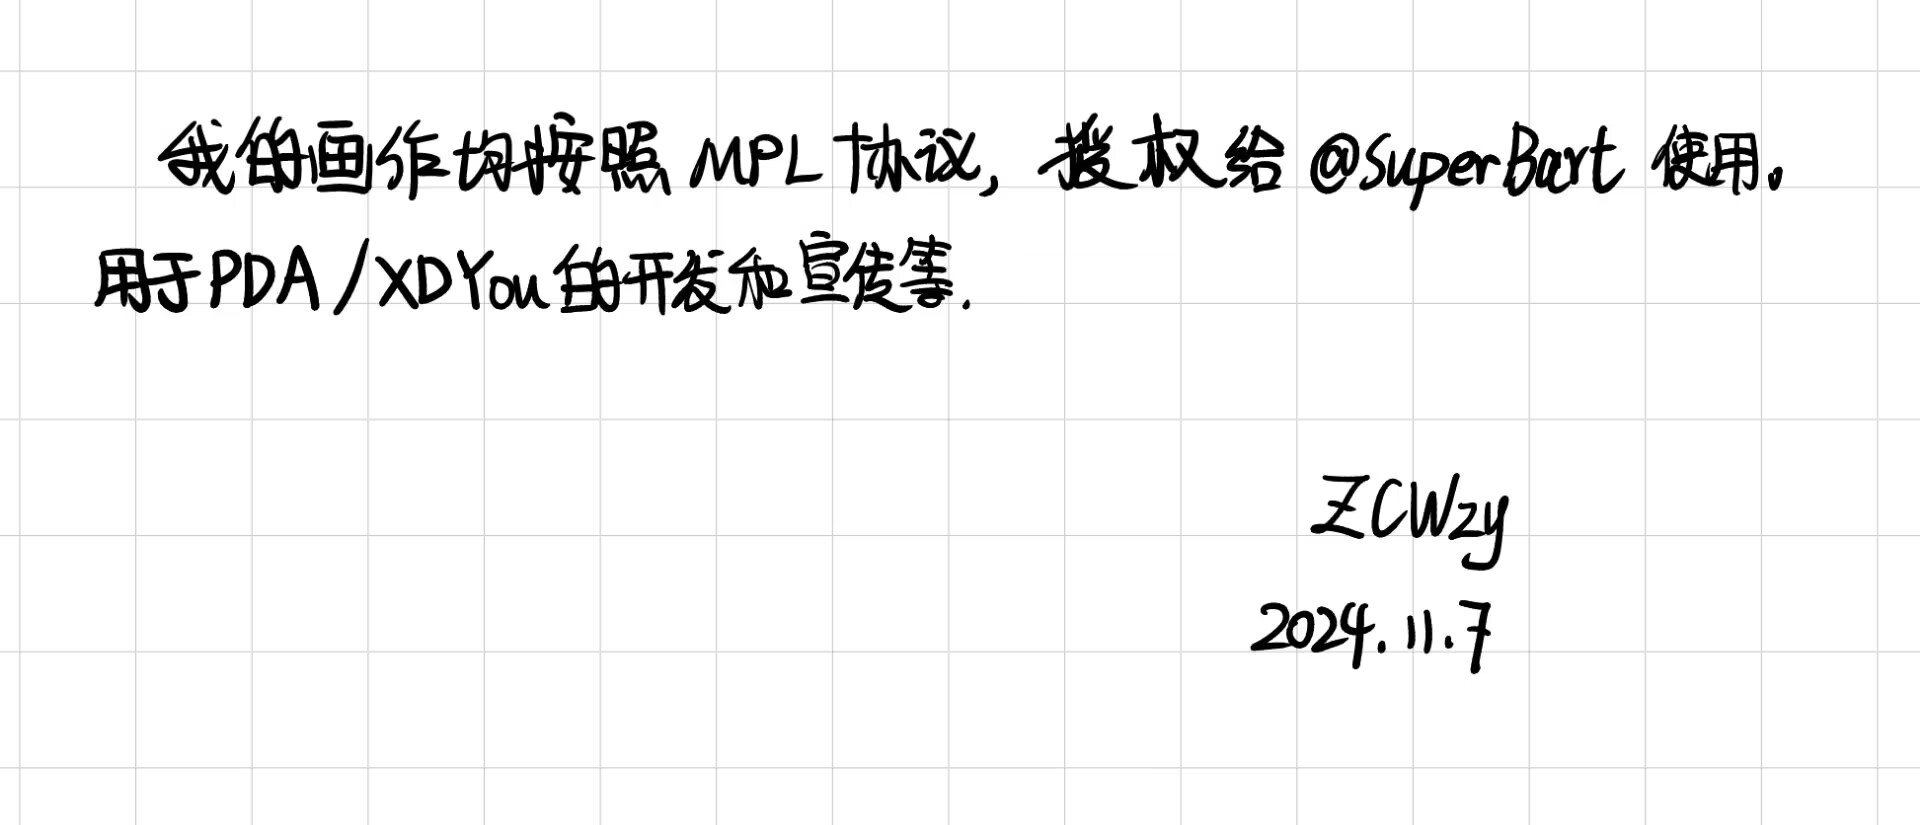 我的画作均按照 MPL 协议，授权给 @SuperBart 使用。
用于PDA/XDYou的开发和宣传等.
ZCWzy
2024.11.7